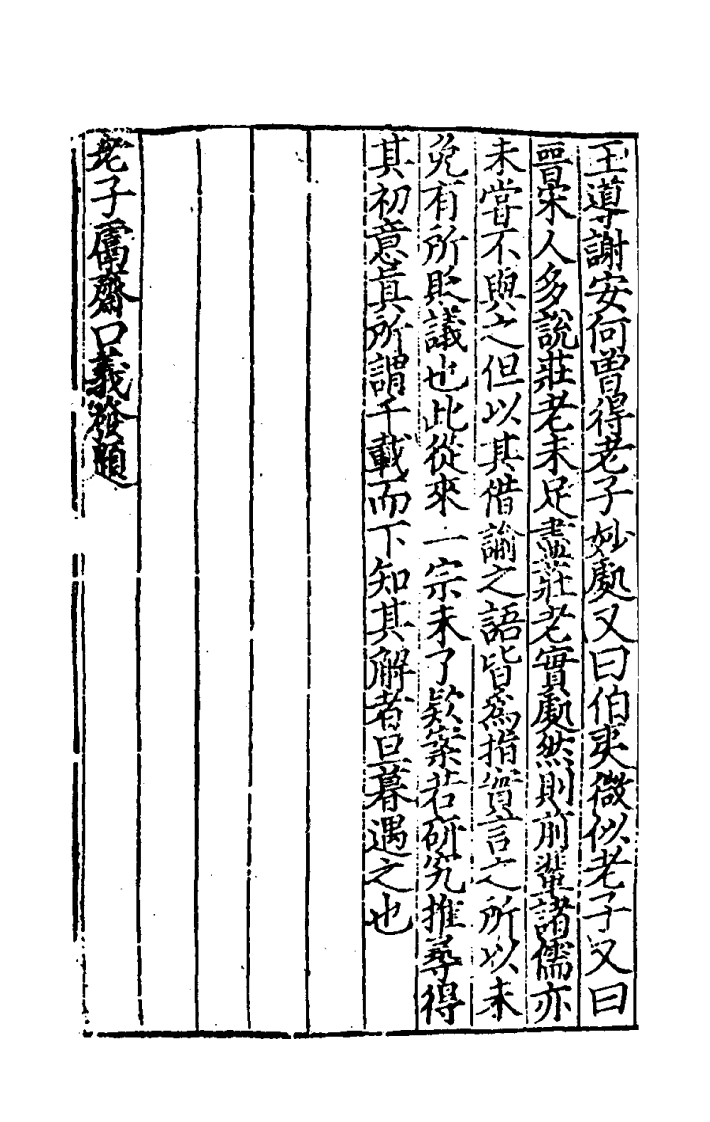 王導謝安何曽得老子妙處又曰伯夷微似老子又曰
晉宋人多說莊老未足盡莊老實處然則前輩諸儒亦
未嘗不與之但以其借諭之語皆爲指實言之所以未
免有所貶議也此從來一宗未了疑案若研究推尋得
其初意真所謂千載而下知其解者旦暮遇之也
老子鬳齋口義發題